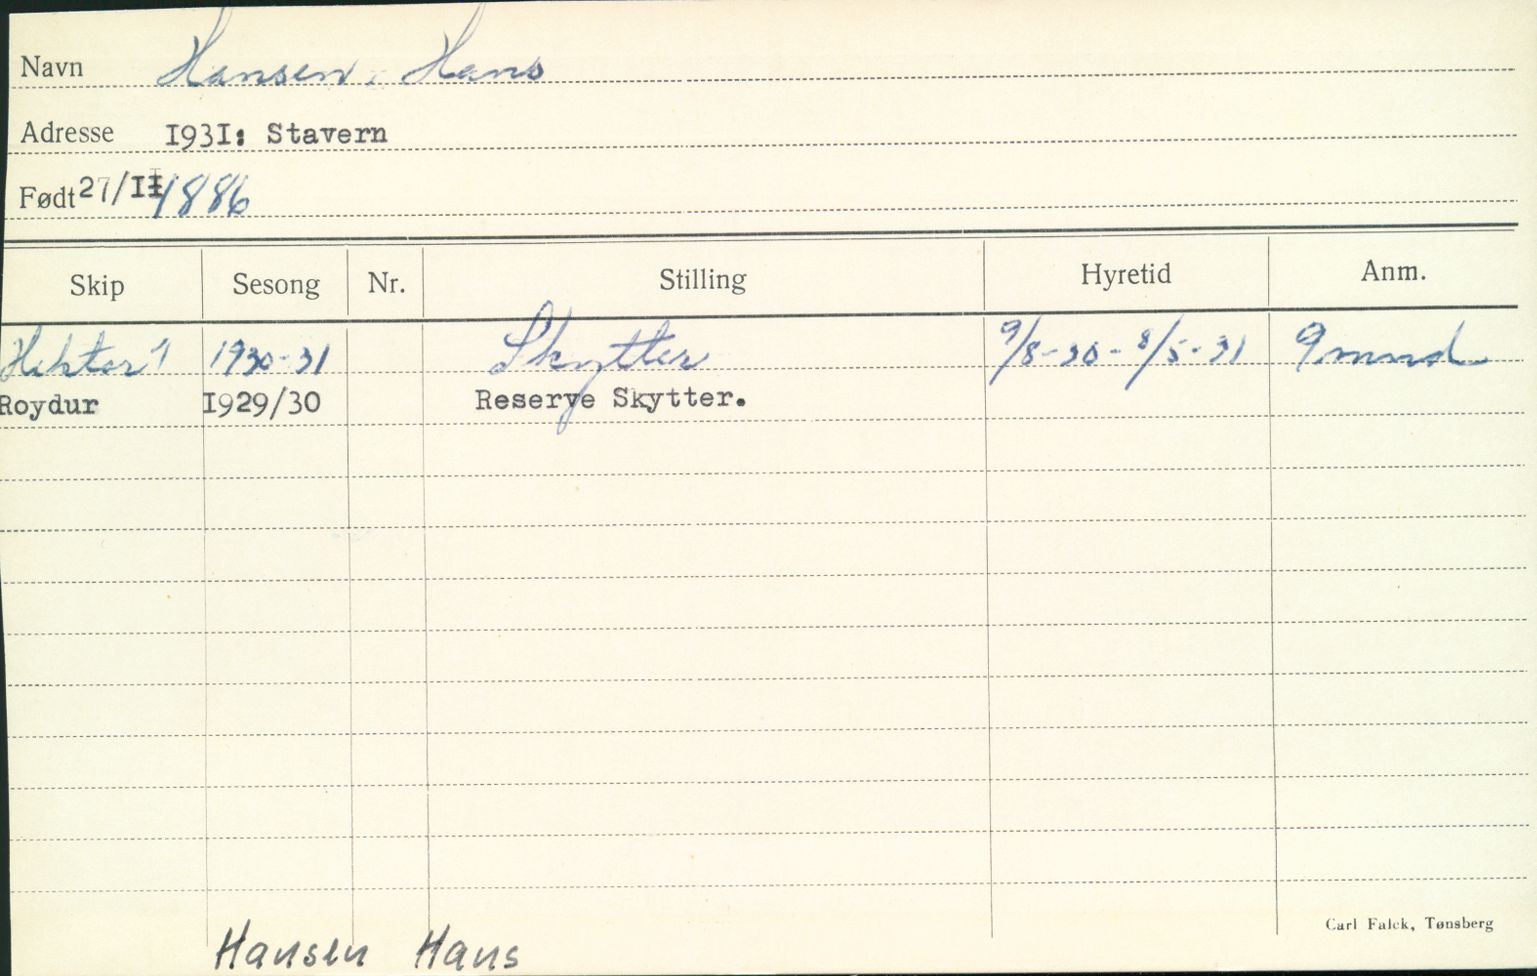 Navn Hansen, Hans
Adresse I93I: Stavern
Født 27/II 1886
Skip Sesong Nr. Stilling Hyretid Anm.
Hektor 1 1930-31 Skytter 9/8-30-8/5-31 9 mnd
Roydur I929/30 Reserve Skytter.
Carl Falck, Tønsberg
Hansen Hans